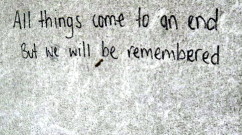 All things come to an end
But we will be remembered